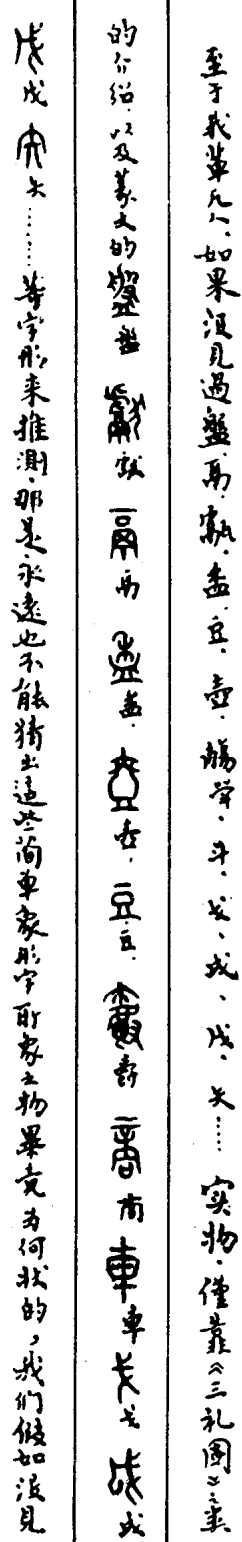 至于我辈凡人、如果没见过盤、鬲、甗、盉、豆、壺、觴、斝、斗、戈、戚、戊、矢……实物、僅靠《三礼圖》之类
的介绍、以及篆文的盤盤 獻獻 鬲鬲 盉盉、壺壺、豆豆、爵 商商 車車 戈戈 戚戚
戊戊 矢矢……等字形来推测、那是永遠也不能猜出這些简单象形字所象之物畢竟为何状的，我们假如没見